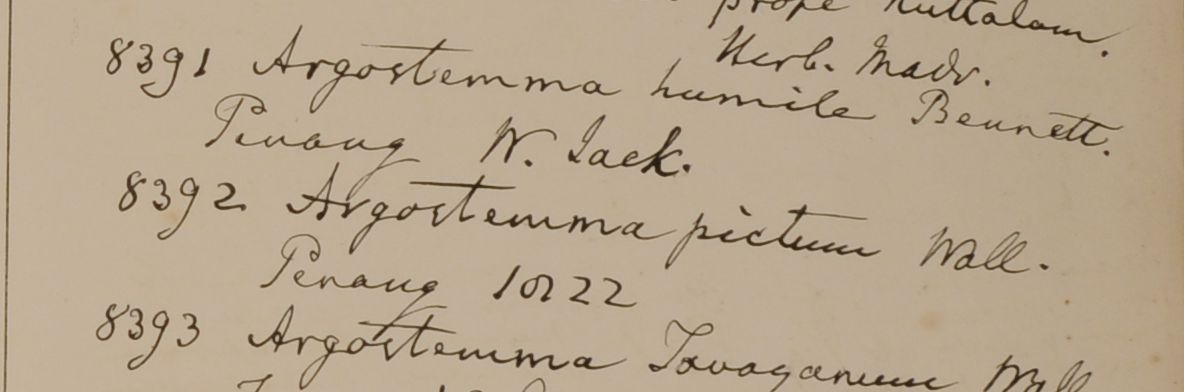 prope Kuttalam.
Herb. Madr.
8391 Argostemma humile Bennett.
Penang W. Jack.
8392 Argostemma pictum Wall.
Penang 1822
8393 Argostemma Tavoyanum Wall